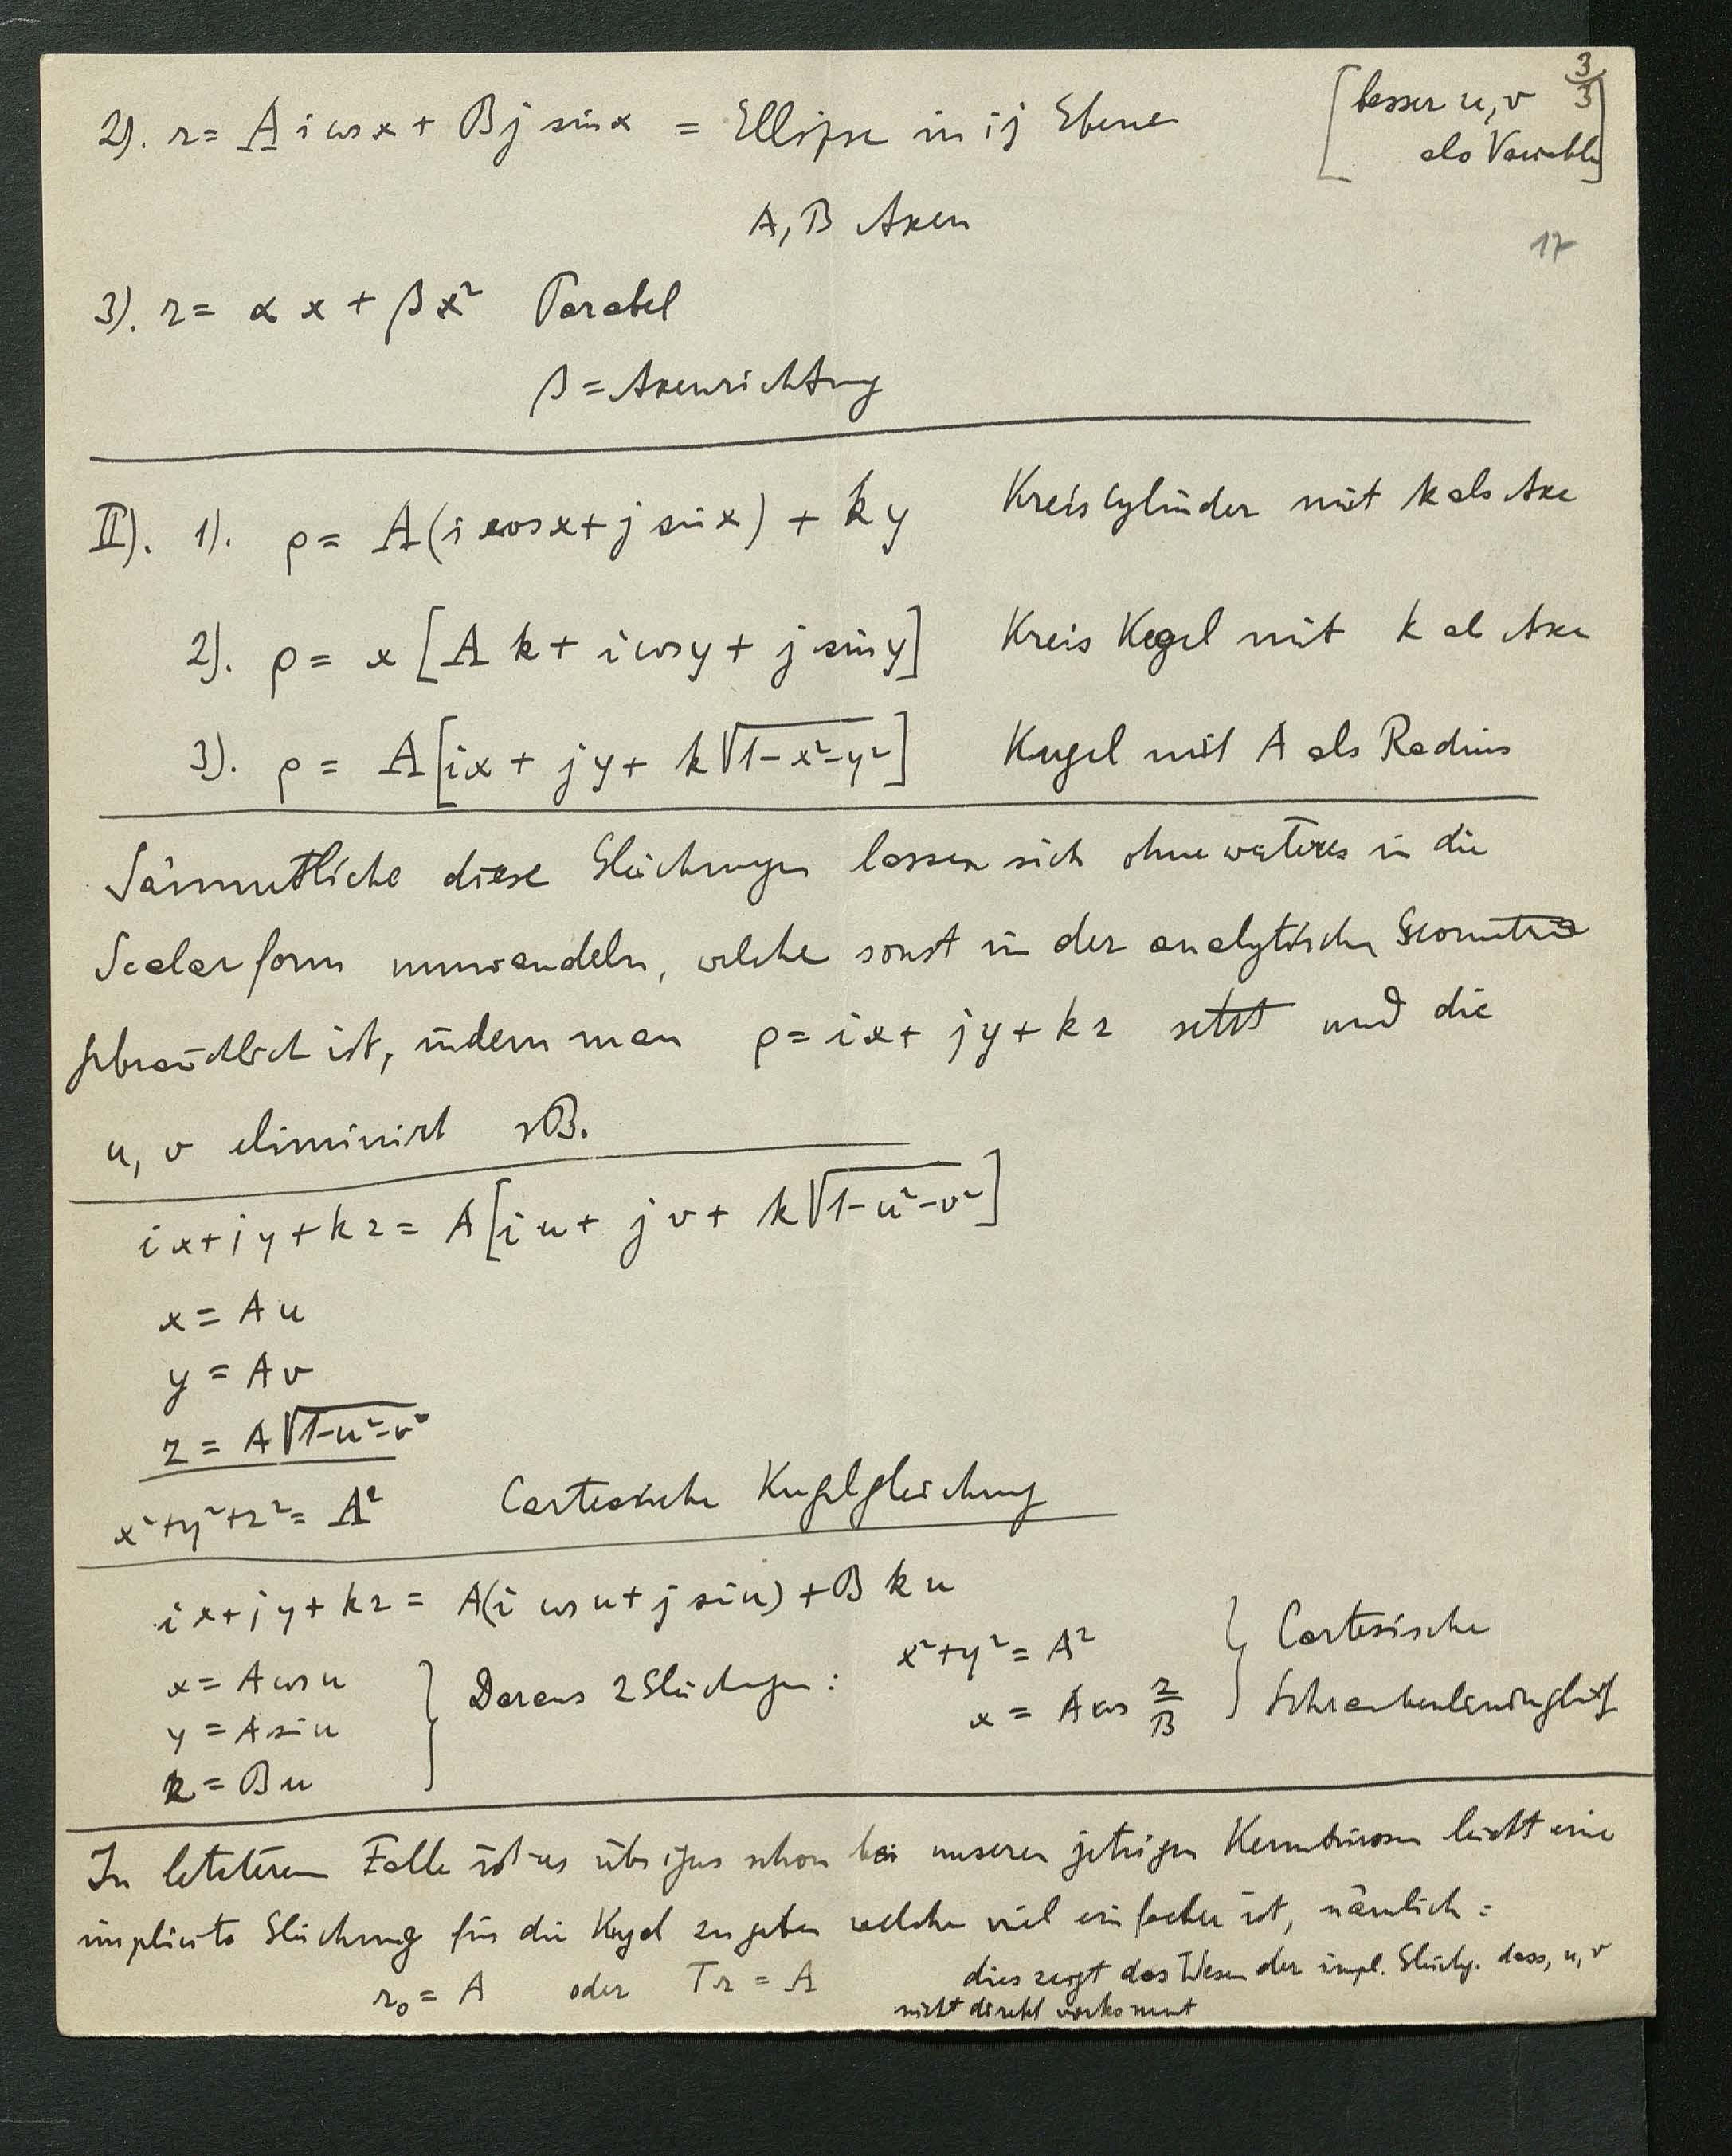 3/3
2). r = A i cos x + B j sin x = Ellipse in ij Ebene
[besser u, v
als Variable]
A, B Axen
17
3). r = α x + β x² Parabel
β = Axenrichtung
II). 1). ρ = A(i cos x + j sin x) + k y Kreiscylinder mit k als Axe
2). ρ = x [A k + i cos y + j sin y] Kreis Kegel mit k al Axe
3). ρ = A[ix + jy + k√1-x²-y²] Kugel mit A als Radius
Sämmtliche diese Gleichungen lassen sich ohne weiteres in die
Scalarform umwandeln, welche sonst in der analytischen Geometrie
gebräuchlich ist, indem man ρ = ix + jy + kz setzt und die
u, v eliminirt zB.
ix + jy + kz = A[iu + jv + k√1-u²-v²]
x = Au
y = Av
z = A√1-u²-v²
x²+y²+z² = A² Cartesische Kugelgleichung
ix + jy + kz = A(i cos u + j sin u) + B k u
x = A cos u
y = A sin u
z = B u
} Daraus 2 Gleichungen:
x²+y² = A²
x = A cos z/B
} Cartesische
Schraubenliniengleichg
In letzterem Falle ist es übrigens schon bei unseren jetzigen Kenntnissen leicht eine
implicite Gleichung für die Kugel zu geben welche viel einfacher ist, nämlich:
r₀ = A oder Tr = A
dies zeigt das Wesen der impl. Gleichg. dass, u, v
nicht direkt vorkommt